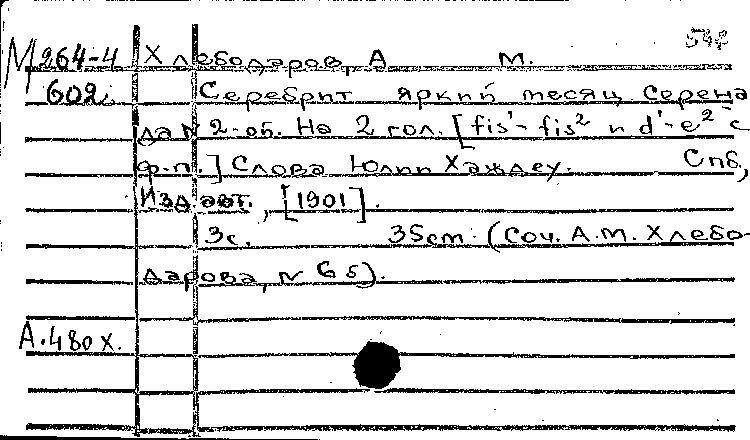 548
М 264-4 Хлебодаров, А М.
602. Серебрит яркий месяц Серена
да № 2-ой. На 2 гол. [fis'-fis² и d'-e² с
ф.-п.] Слова Юлии Хаждеу. Спб,
Изд. авт., [1901].
3с. 35cm. (Соч. А.М. Хлебо-
дарова, № 6 б).
А.480х.